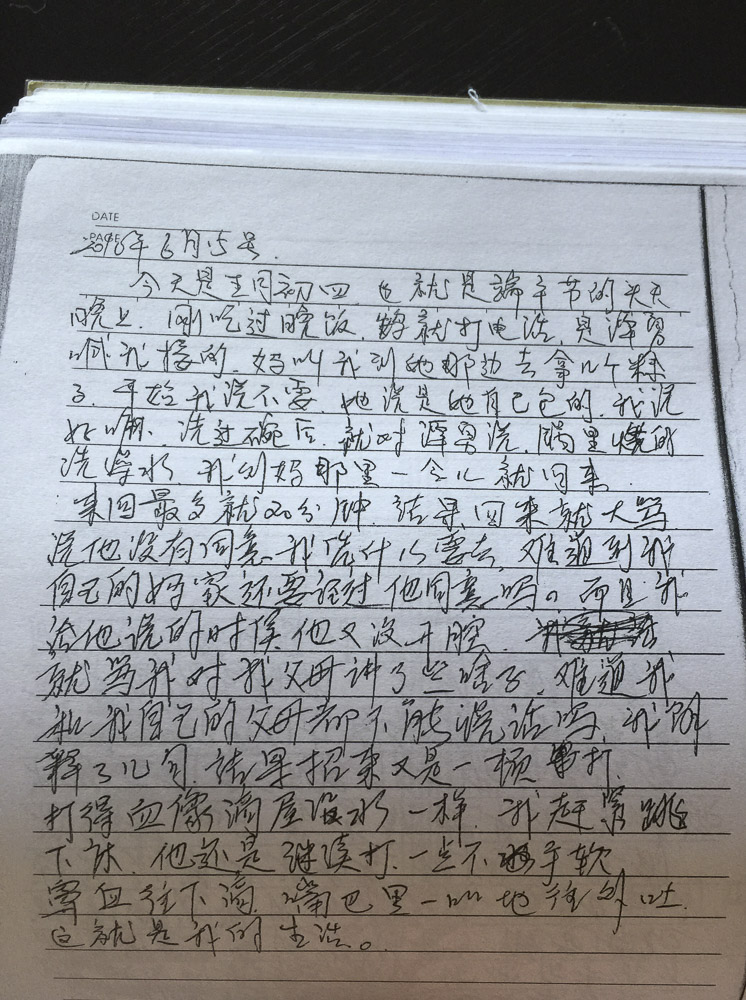 DATE
PAGE
2016年6月15号.
今天是五月初四.也就是端午节的头天
晚上.刚吃过晚饭,就打电话.是泽男
啊我接的.妈叫我到她那边去拿几个粽
子.开始我说不要.她说是她自己包的.我说
好嘛.洗过碗后.就对泽男说.锅里烧的
洗澡水.我到妈那里一会儿就回来.
来回最多就20分钟.结果回来就大骂.
说他没有同意.我凭什么要去.难道到我
自己的妈家还要经过他同意吗。而且我
给他说的时候.他又没开腔.
就骂我对我父母讲了些啥子.难道我
和我自己的父母都不能说话吗.我解
释了几句.结果招来又是一顿打.
打得血像滴屋檐水一样.我赶紧跳
下床.他还是继续打.一点不手软
血往下滴.嘴巴里一口地往外吐.
这就是我的生活。